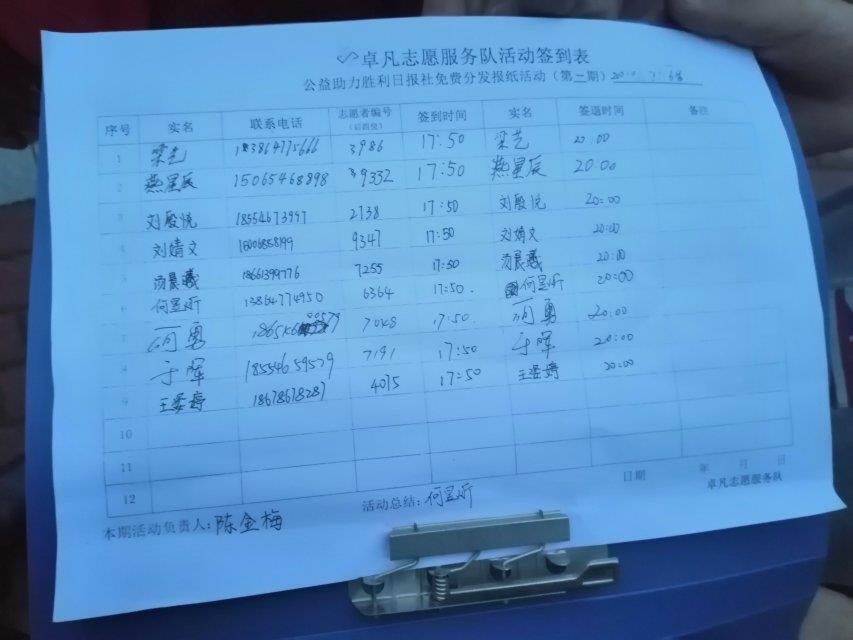 卓凡志愿服务队活动签到表
公益助力胜利日报社免费分发报纸活动（第一期）
序号 实名 联系电话 志愿者编号（后四位） 签到时间 实名 签退时间 备注
1 梁艺 3986 17:50 梁艺 20:00
2 燕星辰 15065468898 39332 17:50 燕星辰 20:00
3 刘殷悦 18554673997 2738 17:50 刘殷悦 20:00
4 刘婧文 9347 17:50 刘婧文 20:00
5 汤晨曦 18661399776 7255 17:50 汤晨曦 20:00
6 何昱昕 13864774950 6364 17:50 何昱昕 20:00
7 何勇 7048 17:50 何勇 20:00
8 于晖 18554659579 7191 17:50 于晖 20:00
9 18678678287 4075 17:50 20:00
10
11
12
日期 年 月 日
本期活动负责人：陈金梅 活动总结：何昱昕 卓凡志愿服务队